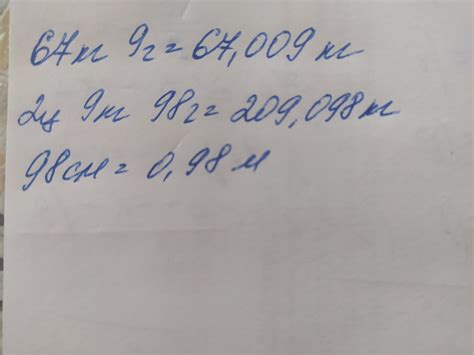 67кг 9г = 67,009 кг
2ц 9кг 98г = 209,098кг
98см = 0,98 м